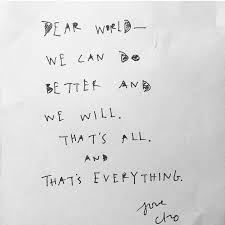 DEAR WORLD—
WE CAN DO
BETTER AND
WE WILL.
THAT'S ALL.
AND
THAT'S EVERYTHING.
love